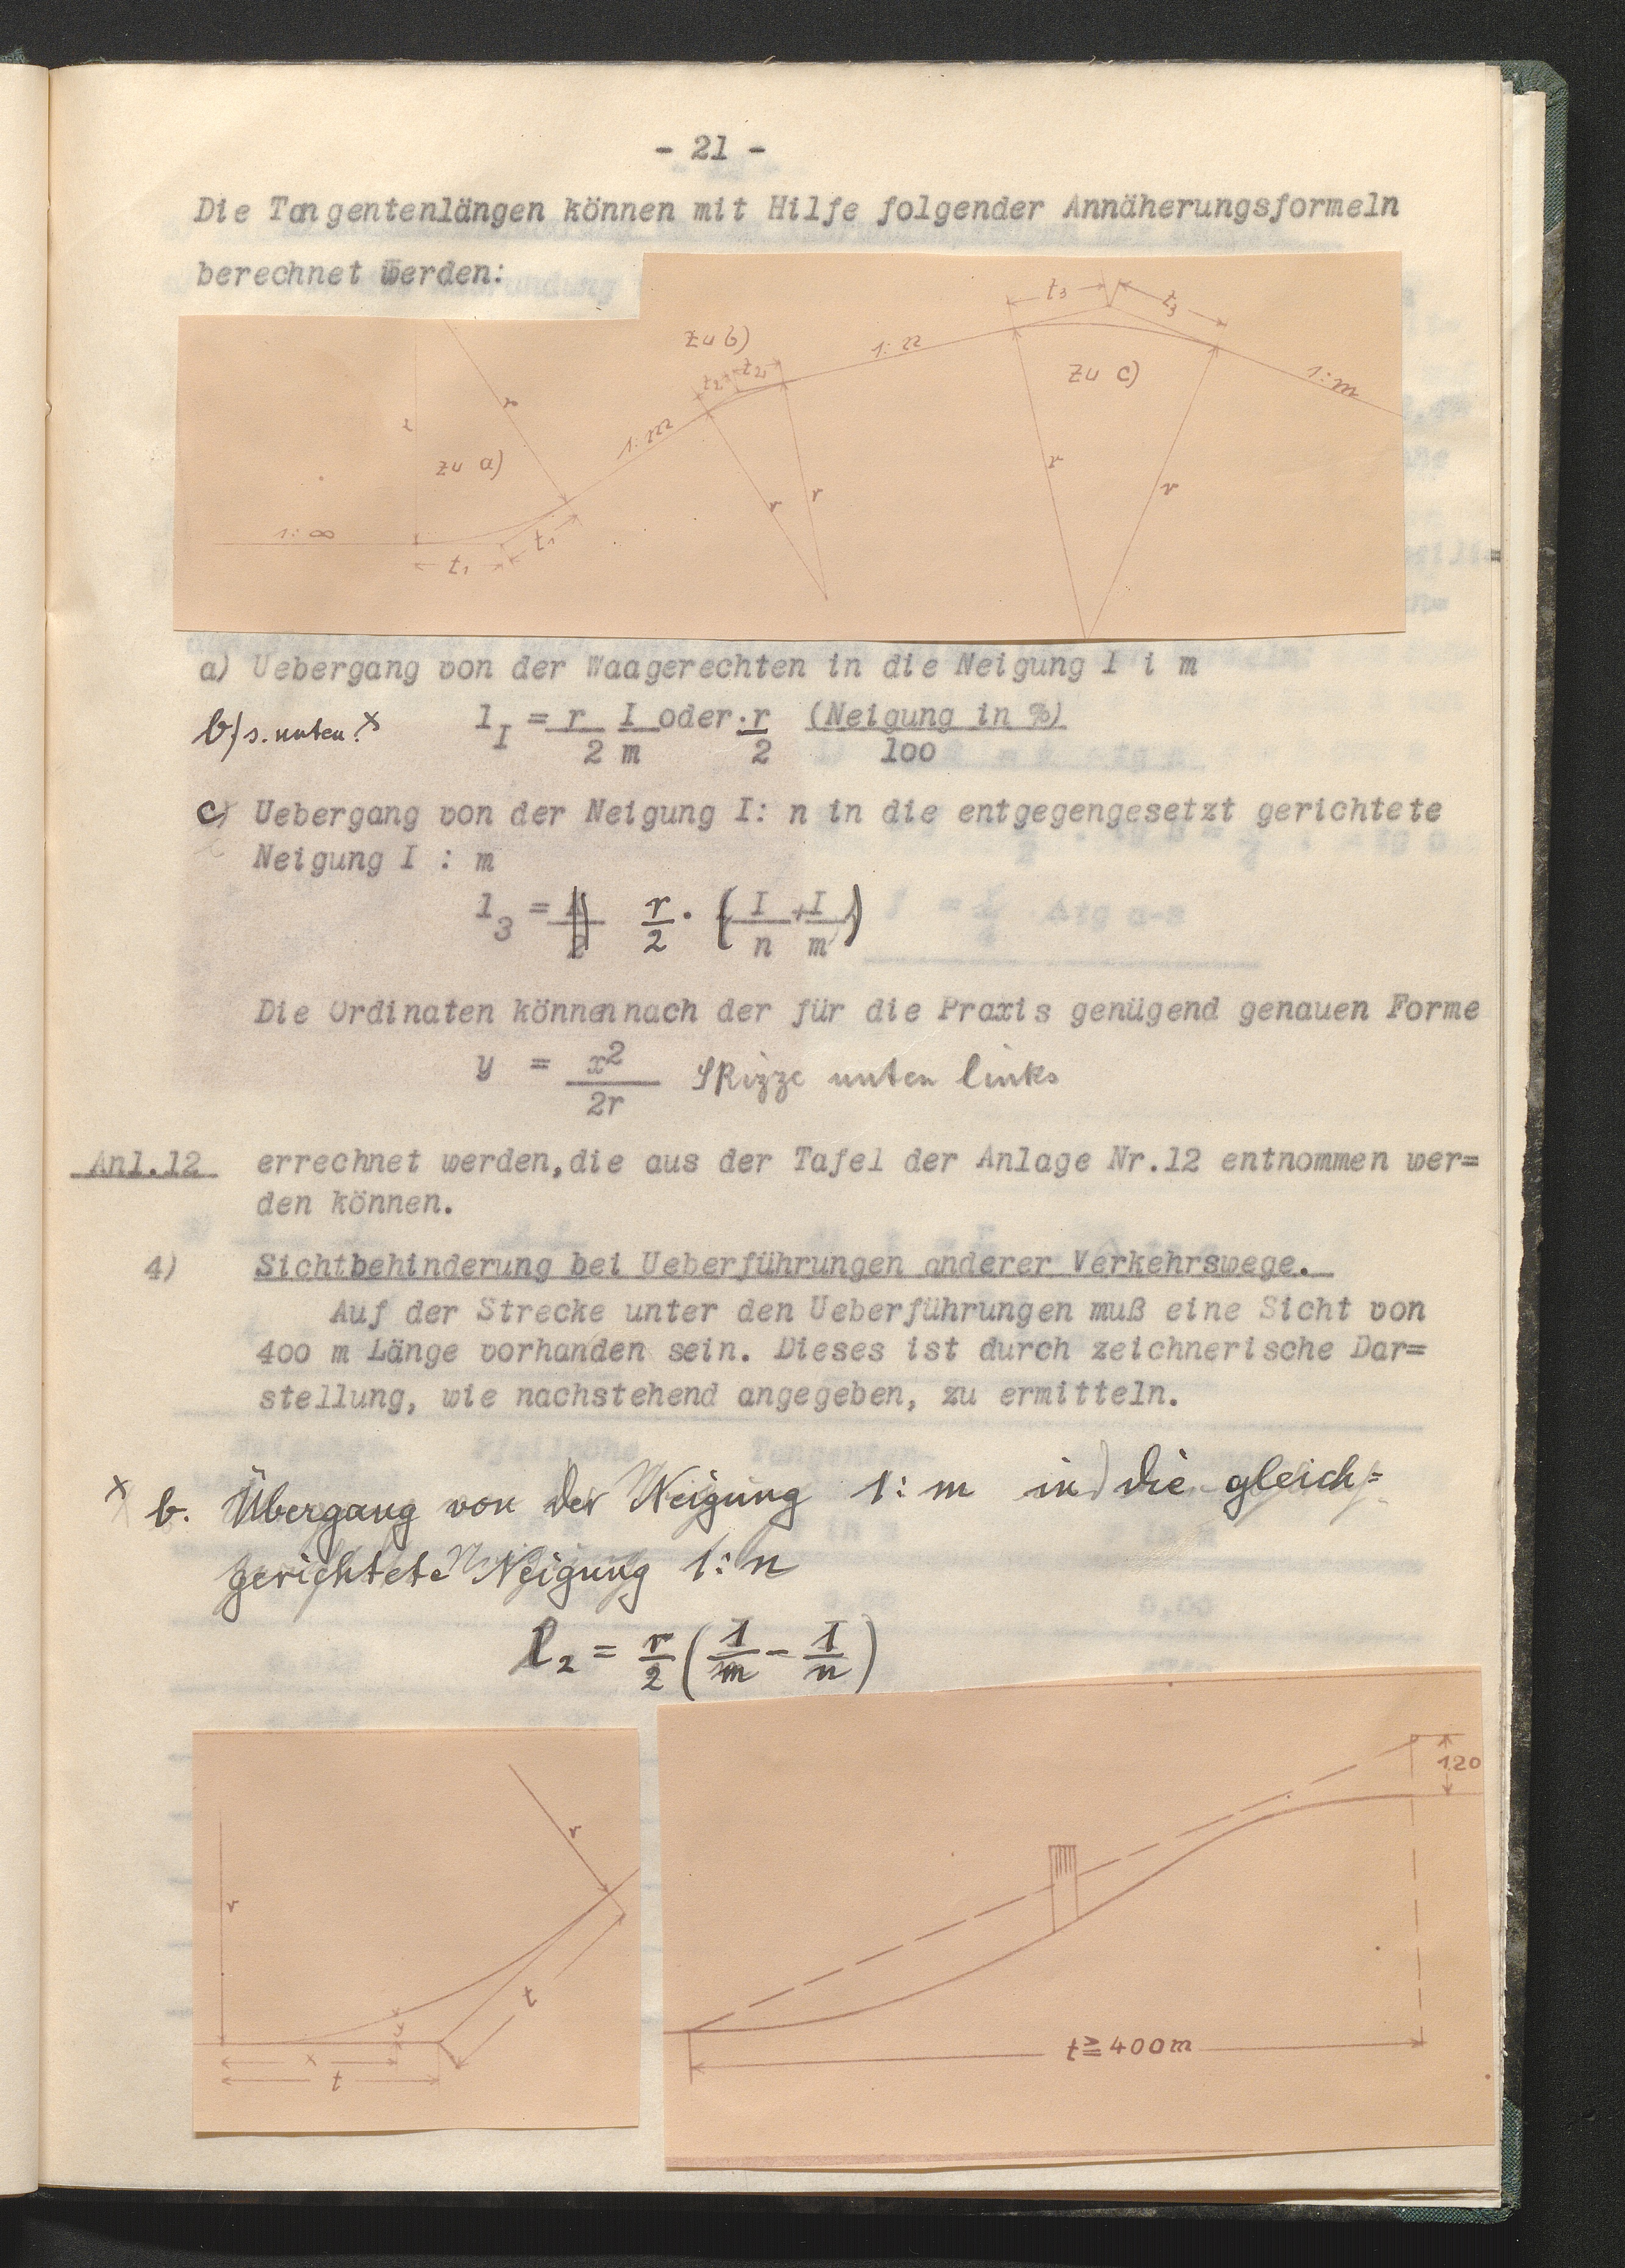 - 21 -
Die Tangentenlängen können mit Hilfe folgender Annäherungsformeln
berechnet werden:
zu b)
t₃ t₃
t₂ t₂
1:n
zu c)
1:m
r r
1:m
zu a)
r r
r r
1:∞
t₁
t₁
a) Uebergang von der Waagerechten in die Neigung I i m
b) s. unten! x
l_I = r/2 I/m oder · r/2 (Neigung in %)/100
c) Uebergang von der Neigung I: n in die entgegengesetzt gerichtete
Neigung I : m
l₃ = r/2 · (I/n + I/m)
Die Ordinaten können nach der für die Praxis genügend genauen Forme
y = x²/2r Skizze unten links
Anl.12 errechnet werden,die aus der Tafel der Anlage Nr.12 entnommen wer=
den können.
4) Sichtbehinderung bei Ueberführungen anderer Verkehrswege.
Auf der Strecke unter den Ueberführungen muß eine Sicht von
400 m Länge vorhanden sein. Dieses ist durch zeichnerische Dar=
stellung, wie nachstehend angegeben, zu ermitteln.
x b. Übergang von der Neigung 1:m in die gleich=
gerichtete Neigung 1:n
l₂ = r/2 (1/m - 1/n)
r
r
t
y
x
t
1.20
t ≧ 400m